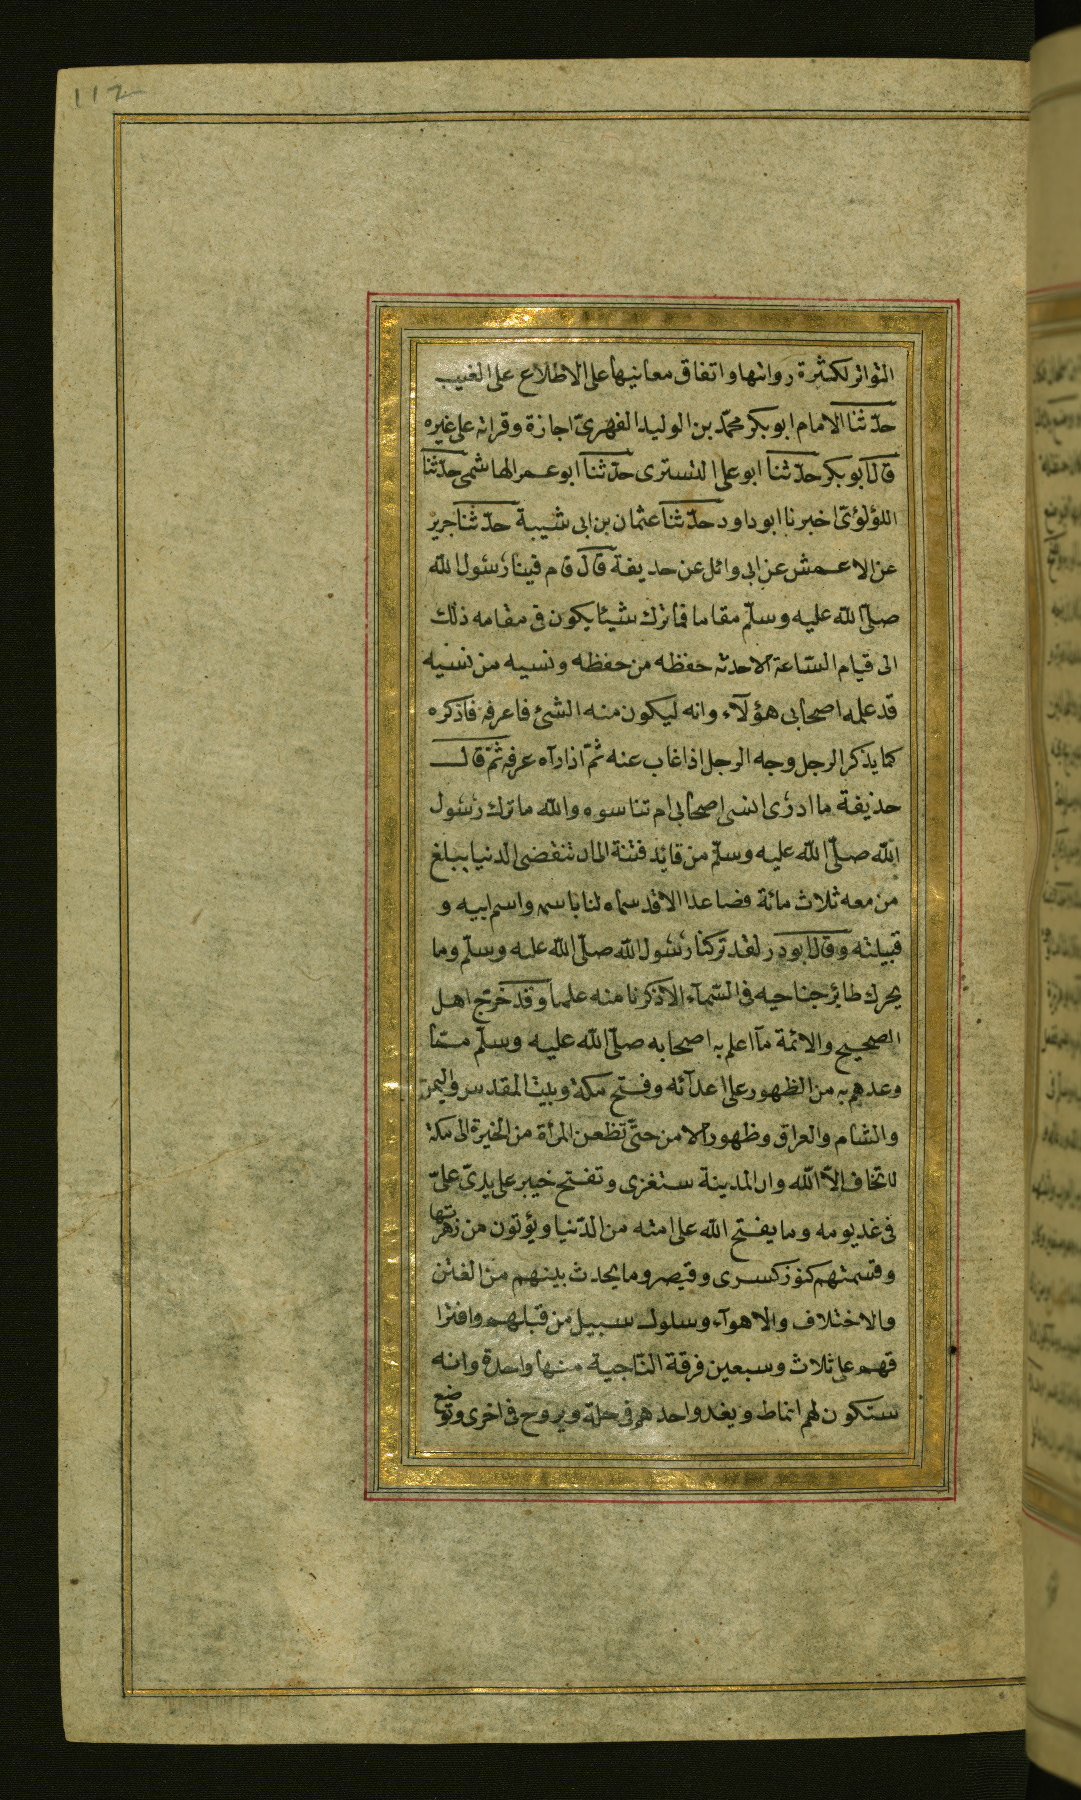 112
التواتر لكثرة رواتها واتفاق معانيها على الاطلاع على الغيب
حدّثنا الامام ابو بكر محمّد بن الوليد الفهرىّ اجازة وقراته على غيره
قال ابو بكر حدّثنا ابو على التسترى حدّثنا ابو عمر الهاشمى حدّثنا
اللؤلوئ اخبرنا ابو داود حدّثنا عثمان بن ابى شيبة حدّثنا جرير
عن الاعمش عن ابى وائل عن حذيفة قال قام فينا رسول الله
صلّى الله عليه وسلّم مقاما فما ترك شيئا يكون فى مقامه ذلك
الى قيام السّاعة الا حدثه حفظه من حفظه ونسيه من نسيه
قد علمه اصحابى هؤلآء وانه ليكون منه الشئ فاعرفه فاذكره
كما يذكر الرجل وجه الرجل اذا غاب عنه ثمّ اذا رآه عرفه ثمّ قال
حذيفة ما ادرى انسى اصحابى ام تناسوه والله ما ترك رسول
الله صلّى الله عليه وسلّم من قائد فتنة الى ان تنقضى الدنيا يبلغ
من معه ثلاث مائة فصاعدا الا قد سماه لنا باسمه واسم ابيه و
قبيلته وقال ابو ذر لقد تركنا رسول الله صلّى الله عليه وسلّم وما
يحرك طائر جناحيه فى السّماء الا ذكرنا منه علما وقد خرّج اهل
الصحيح والائمة ما اعلم به اصحابه صلّى الله عليه وسلّم ممّا
وعدهم به من الظهور على اعدآئه وفتح مكة وبيت المقدس واليمن
والشام والعراق وظهور الامن حتّى تظعن المرأة من الحيرة الى مكة
لا تخاف الاّ الله وان المدينة ستغزى وتفتح خيبر على يدىّ علىّ
فى غد يومه وما يفتح الله على امته من الدّنيا ويؤتون من زهرتها
وقسمتهم كنوز كسرى وقيصر وما يحدث بينهم من الفتن
والاختلاف والاهوآء وسلوك سبيل من قبلهم وافترا
قهم على ثلاث وسبعين فرقة النّاجية منها واحدة وانه
ستكون لهم انماط ويغدو احدهم فى حلة ويروح فى اخرى وتوضع